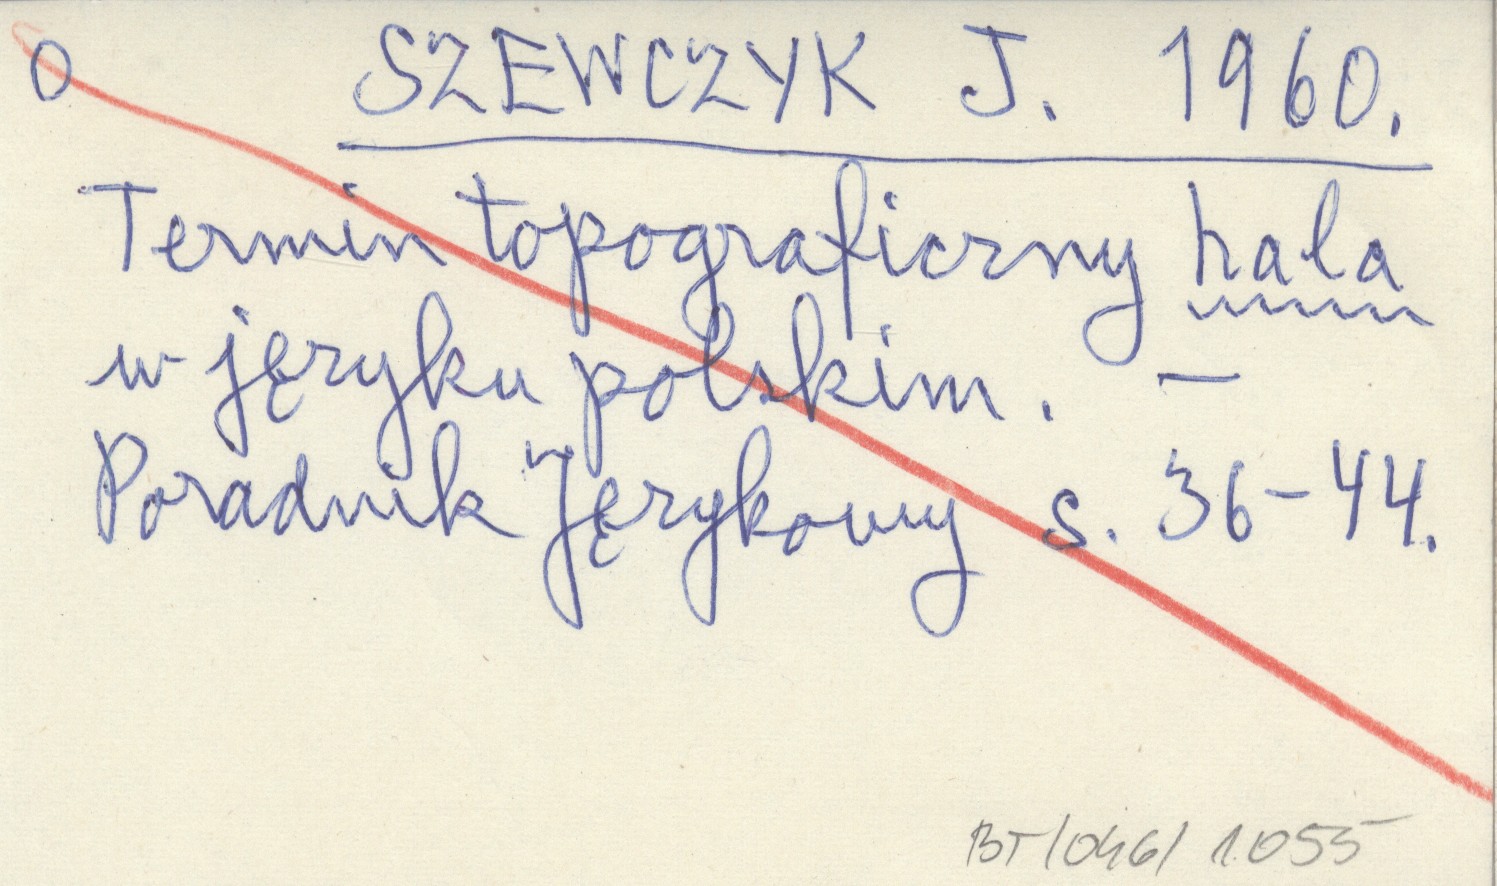 O SZEWCZYK J. 1960.
Termin topograficzny hala
w języku polskim. —
Poradnik Językowy s. 36-44.
BT/046/1055